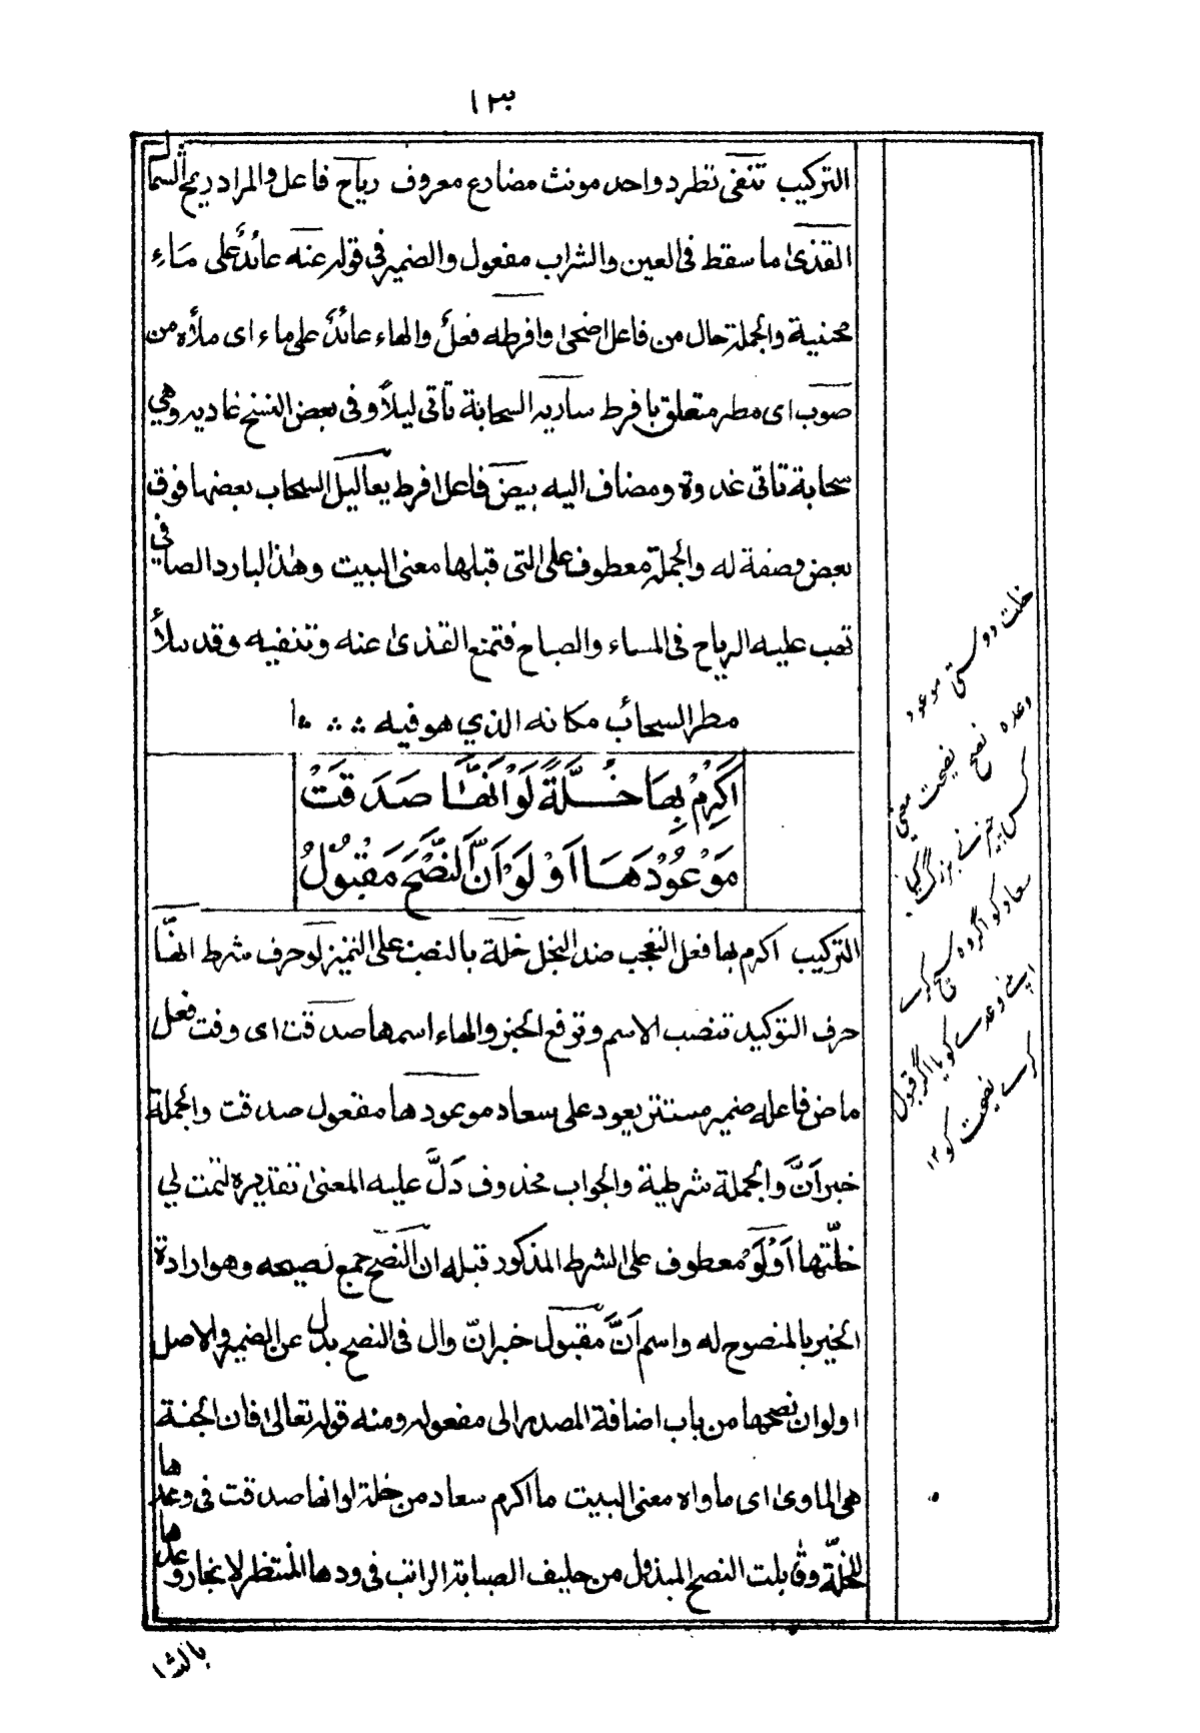 ١٣
التركيب تنفى تطرد واحد مونث مضارع معروف رياح فاعل والمراد ريح الشمال
القذى ما سقط فى العين والشراب مفعول والضمير فى قوله عنه عائدٌ على ماءِ
محنية والجملة حال من فاعل اضحى وافرطه فعلٌ والهاء عائدٌ على ماء اى ملأه من
صوب اى مطر متعلق بافرط سارية السحابة تاتى ليلاً وفى بعض النسخ غادية وهي
سحابة تاتى غدوة ومضاف اليه بيض فاعل افرط يعاليل السحاب بعضها فوق
بعض وصفة له والجملة معطوف على التى قبلها معنى البيت وهذا البارد الصافي
تهب عليه الرياح فى المساء والصباح فتمنع القذى عنه وتنفيه وقد ملأ
مطر السحائب مكانه الذي هو فيه
اَكْرِمْ بِهَا خُلَّةً لَوْ اَنَّهَا صَدَقَتْ
مَوْعُوْدَهَا اَوْ لَوْ اَنَّ النُّصْحَ مَقْبُوْلُ
التركيب اكرم بها فعل التعجب ضد البخل خلة بالنصب على التميز لو حرف شرط انهّا
حرف التوكيد تنصب الاسم وترفع الخبر والهاء اسمها صدقت اى وفت فعل
ماض فاعله ضمير مستتر يعود على سعاد موعودها مفعول صدقت والجملة
خبر اَنَّ والجملة شرطية والجواب محذوف دَلَّ عليه المعنى تقديره لتمت لي
خلّتها اَوْ لَوْ معطوف على الشرط المذكور قبله ان النصح جمع نصيحه وهو ارادة
الخير بالمنصوح له واسم اَنَّ مقبول خبر انّ وال فى النصح بدل عن الضمير والاصل
او لو ان نصحها من باب اضافة المصدر الى مفعوله ومنه قوله تعالى فان الجنة
هى الماوى اى ماواه معنى البيت ما اكرم سعاد من خلة لو انها صدقت فى وعدها
للخلّة وقابلت النصح المبذول من حليف الصبابة الراتب فى ودها المنتظر لانجاز وعدها
خلت دوستى موعود
وعده نصح نصيحت معنى
كس چيز نے بزرگ كيا
سعاد كو اگر وه سچ كرے
اپنے وعدے كو يا اگر قبول
كرے نصيحت كو ١٢
بالشا